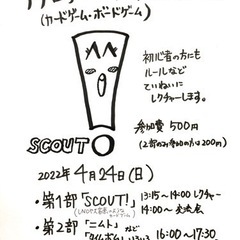 (カードゲーム・ボードゲーム)
初心者の方にも
ルールなど
ていねいに
レクチャーします。
参加費 500円
(2部のみ参加の方は200円)
SCOUT!
2022年 4月24日(日)
・第1部「SCOUT!」 13:15〜14:00 レクチャー
14:00〜
・第2部「ニムト」など 16:00〜17:30